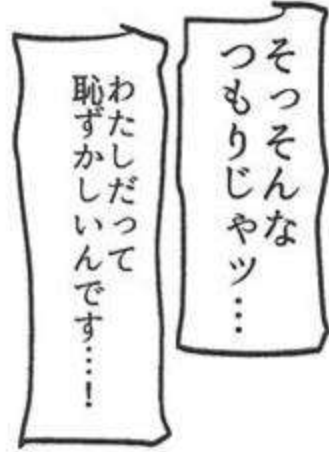 そっそんな
つもりじゃッ…
わたしだって
恥ずかしいんです…！